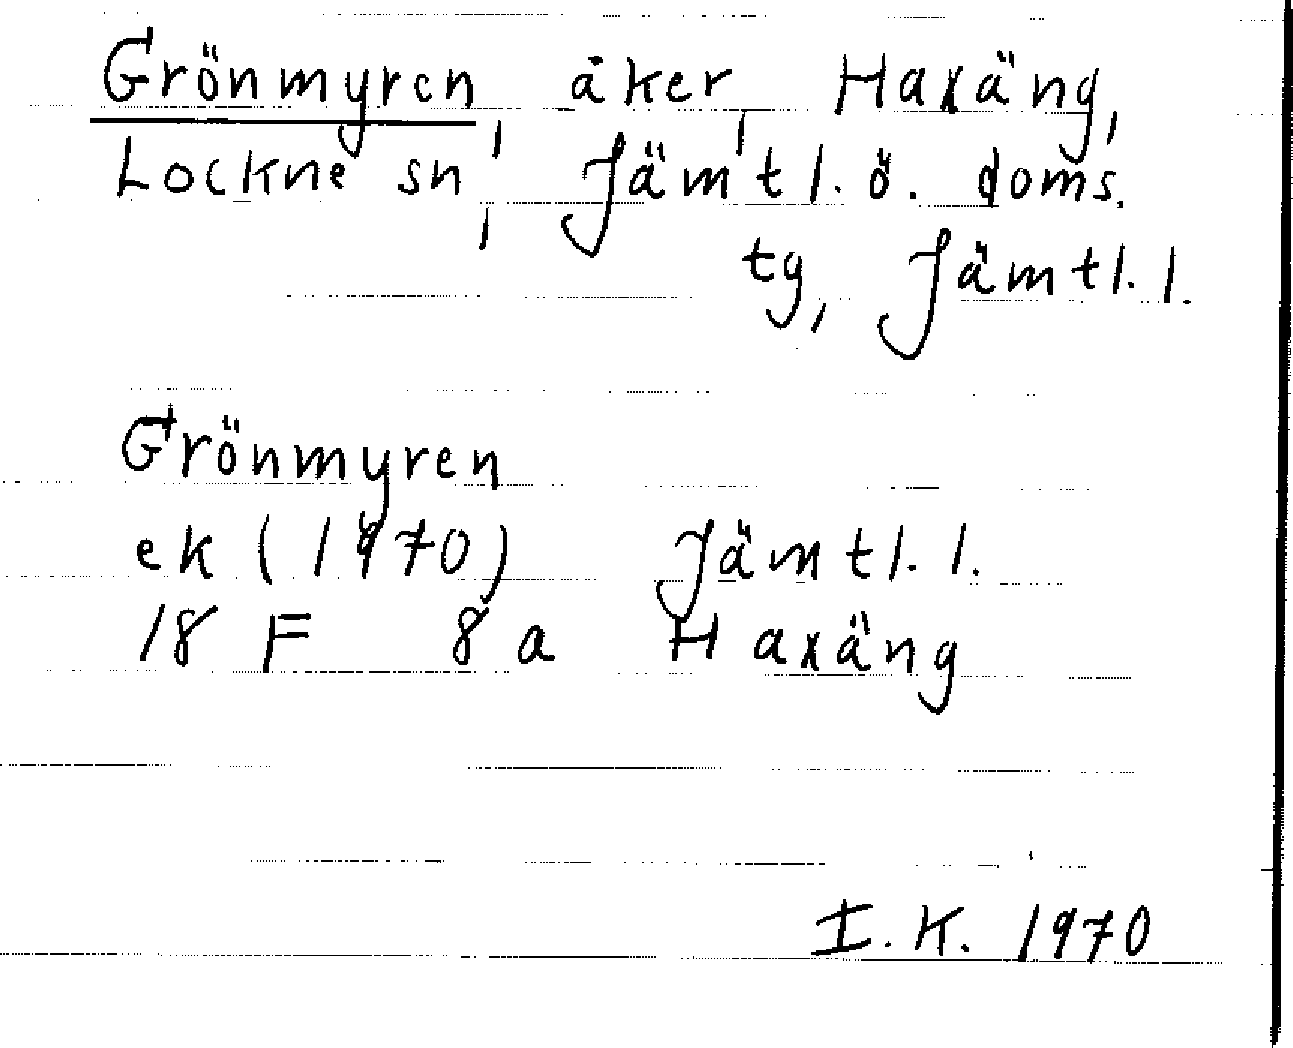 Grönmyren, åker, Haxäng,
Lockne sn, Jämtl. ö. doms.
tg, Jämtl. l.
Grönmyren
ek (1970) Jämtl. l.
18 F 8 a Haxäng
I. K. 1970